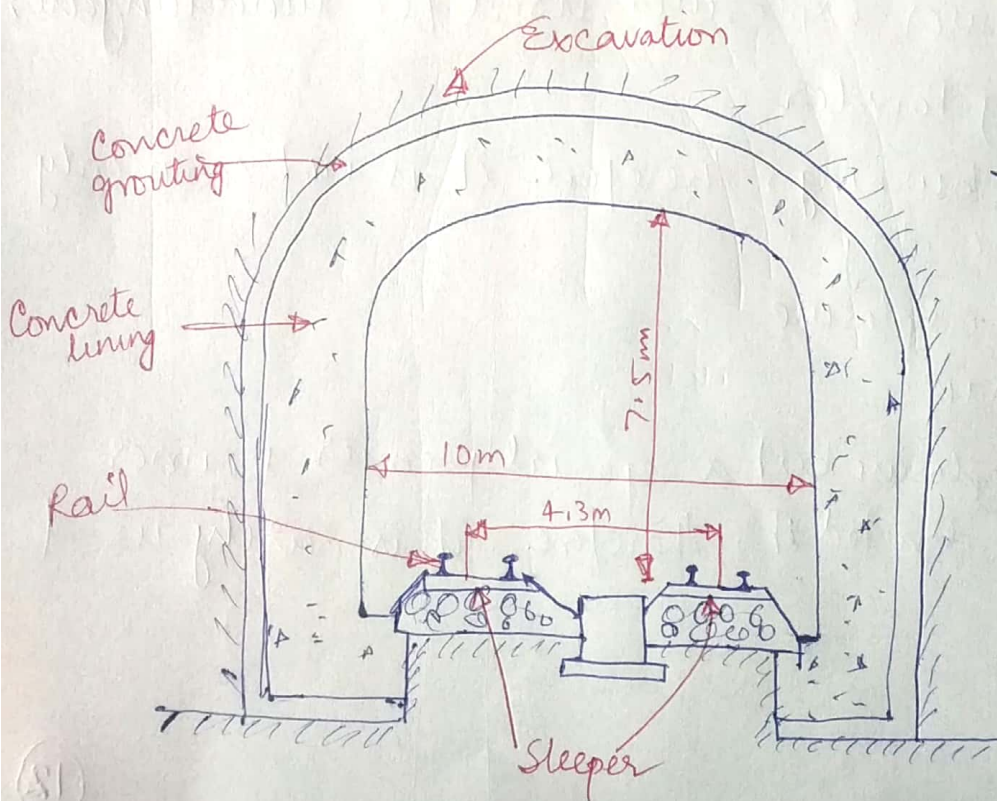 Excavation
Concrete
grouting
Concrete
lining
7.5m
10m
4.3m
Rail
Sleeper